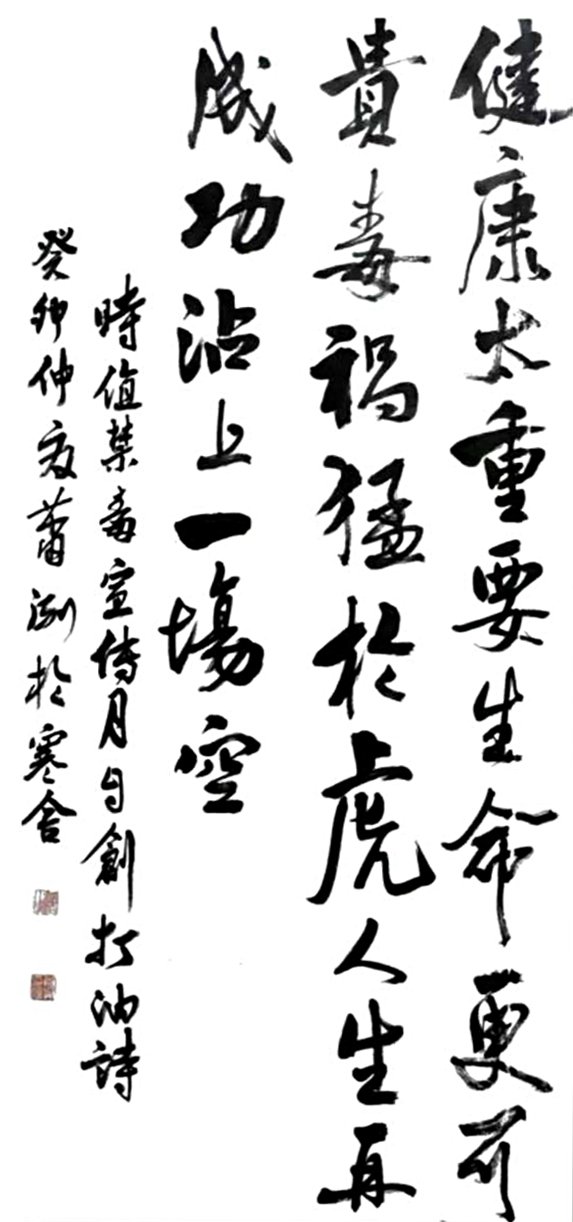 健康太重要生命更可
貴毒禍猛於虎人生再
成功沾上一場空
時值禁毒宣傳月自創打油詩
癸卯仲夏蕭渊於寒舍